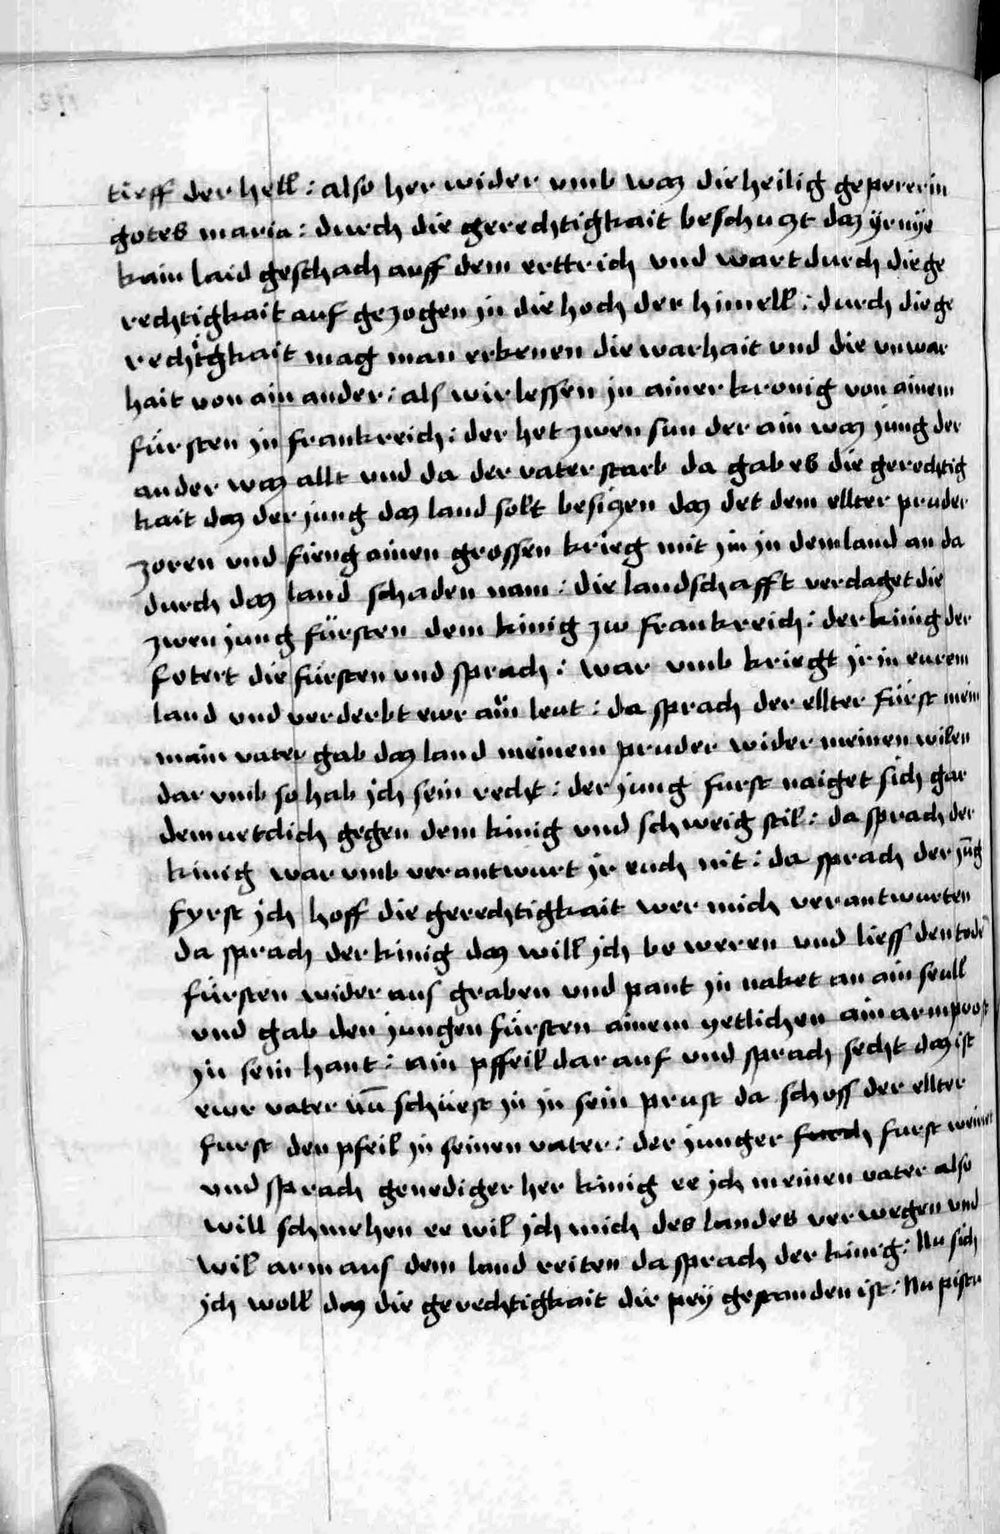 tieff der hell : also her wider vmb waz die heilig gepererin
gotes maria : durch die gerechtigkait beschuczt daz yr nye
kain laid geschach auff dem erttrich vnd wart durch die ge
rechtigkait auf gezogen in die hoch der himell : durch die ge
rechtigkait mag man erkenen die warhait vnd die vnwar
hait von ain ander : als wir lessen jn ainer kronig von ainem
fürsten jn frankreich : der het zwen sun der ain waz jung der
ander waz allt vnd da der vater starb da gab es die gerechtig
kait daz der jung daz land solt besiczen daz det dem ellter pruder
zoren vnd fieng ainen grossen krieg mit jm jn dem land an da
durch daz land schaden nam : die landschafft verclaget die
zwen jung fürsten dem kinig zw frankreich : der kinig der
fotert die fürsten vnd sprach : war vmb kriegt jr in eurem
land vnd verderbt ewr leut : da sprach der ellter fürst mein
main vater gab daz land meinem pruder wider meinen wilen
dar vmb so hab jch sein recht : der jung furst naiget sich gar
demuetclich gegen dem kinig vnd schweig stil : da sprach der
kinig war vmb verantwurt jr euch nit : da sprach der jūg
fyrst jch hoff die gerechtigkait wer mich verantwurten
da sprach der kinig daz will jch beweren vnd lieff den tode
fürsten wider aus graben vnd pant jn naket an ain seull
vnd gab den jungen fürsten ainem yetlichen ain armprost
jn sein hant : ain pffeil dar auf vnd sprach secht daz ist
ewr vater nū schüest jn jn sein prust da schoss der ellter
furst den pfeil jn seinen vater : der junger furch furst weinet
vnd sprach genediger her kinig ee jch meinen vater also
will schmehen ee wil jch mich des landes verwegen vnd
wil arm aus dem land reiten da sprach der kinig : Nu sich
jch woll daz die gerechtigkait dir pey gestanden ist : Nu pistu